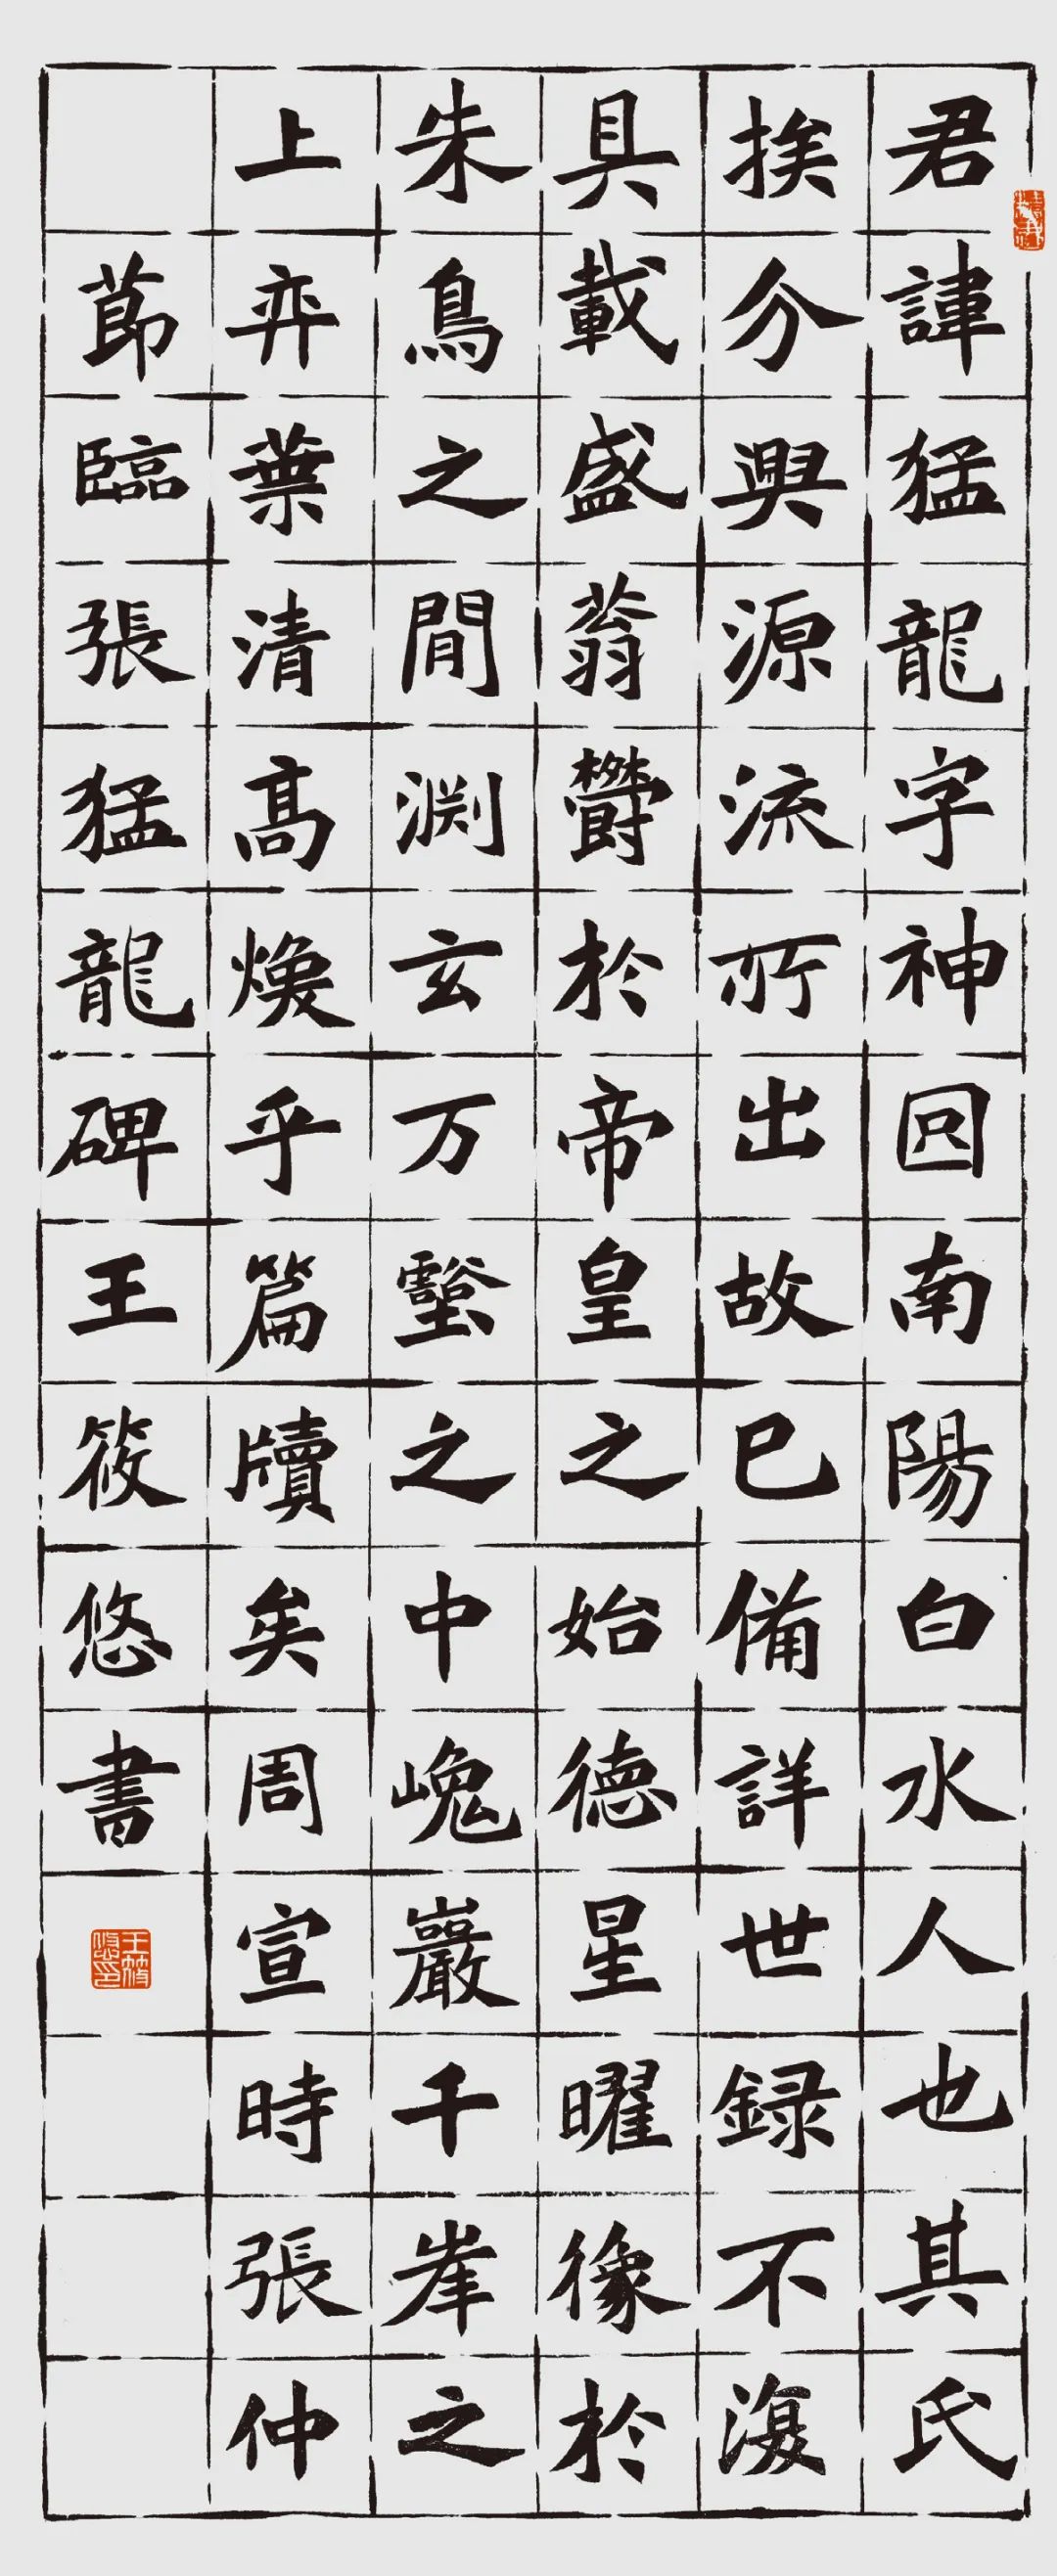 君諱猛龍字神冏南陽白水人也其氏
族分興源流所出故已備詳世録不復
具載盛蓊欝於帝皇之始德星曜像於
朱鳥之間淵玄万壑之中巉巖千峯之
上弈葉清高煥乎篇牘矣周宣時張仲
節臨張猛龍碑王筱悠書
王筱悠印